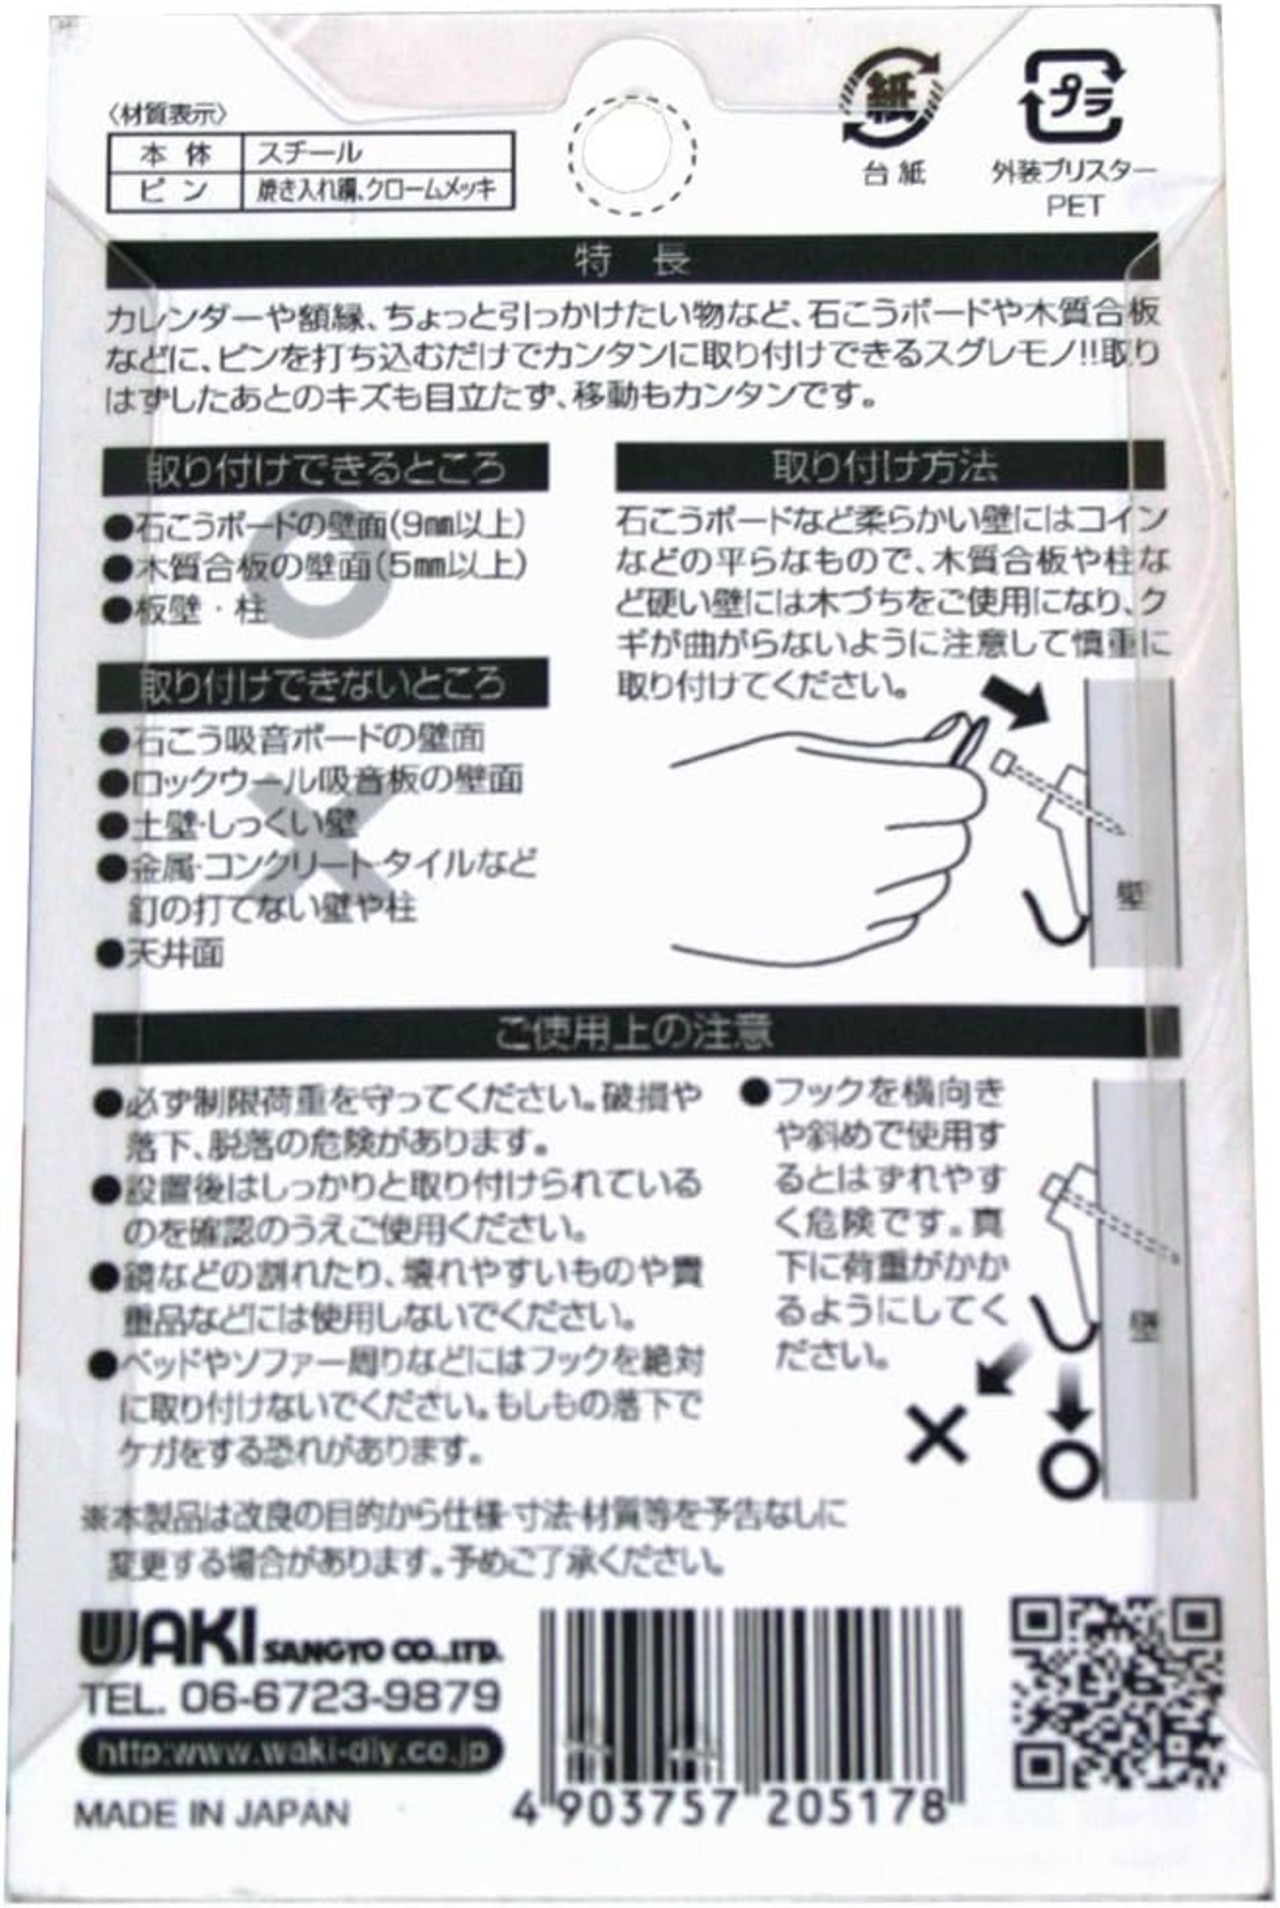 〈材質表示〉
本体 スチール
ピン 焼き入れ鋼、クロームメッキ
紙
台紙
プラ
外装ブリスター
PET
特 長
カレンダーや額縁、ちょっと引っかけたい物など、石こうボードや木質合板
などに、ピンを打ち込むだけでカンタンに取り付けできるスグレモノ!!取り
はずしたあとのキズも目立たず、移動もカンタンです。
取り付けできるところ
●石こうボードの壁面(9mm以上)
●木質合板の壁面(5mm以上)
●板壁・柱
取り付けできないところ
●石こう吸音ボードの壁面
●ロックウール吸音板の壁面
●土壁・しっくい壁
●金属・コンクリート・タイルなど
釘の打てない壁や柱
●天井面
取り付け方法
石こうボードなど柔らかい壁にはコイン
などの平らなもので、木質合板や柱な
ど硬い壁には木づちをご使用になり、ク
ギが曲がらないように注意して慎重に
取り付けてください。
壁
ご使用上の注意
●必ず制限荷重を守ってください。破損や
落下、脱落の危険があります。
●設置後はしっかりと取り付けられている
のを確認のうえご使用ください。
●鏡などの割れたり、壊れやすいものや貴
重品などには使用しないでください。
●ベッドやソファー周りなどにはフックを絶対
に取り付けないでください。もしもの落下で
ケガをする恐れがあります。
●フックを横向き
や斜めで使用す
るとはずれやす
く危険です。真
下に荷重がかか
るようにしてく
ださい。
壁
※本製品は改良の目的から仕様・寸法・材質等を予告なしに
変更する場合があります。予めご了承ください。
WAKI SANGYO CO.,LTD.
TEL. 06-6723-9879
http:www.waki-diy.co.jp
MADE IN JAPAN
4 903757 205178